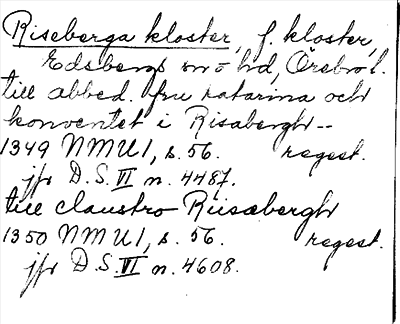 Riseberga kloster, f. kloster,
Edsbergs sn o hd, Örebro l.
till abbed. fru Katarina och
konventet i Risabergh --
1349 NMU1, s. 56. regest.
jfr D.S. VI n. 4487.
till claustro Riisæbergh
1350 NMU1, s. 56. regest.
jfr D.S. VI n. 4608.